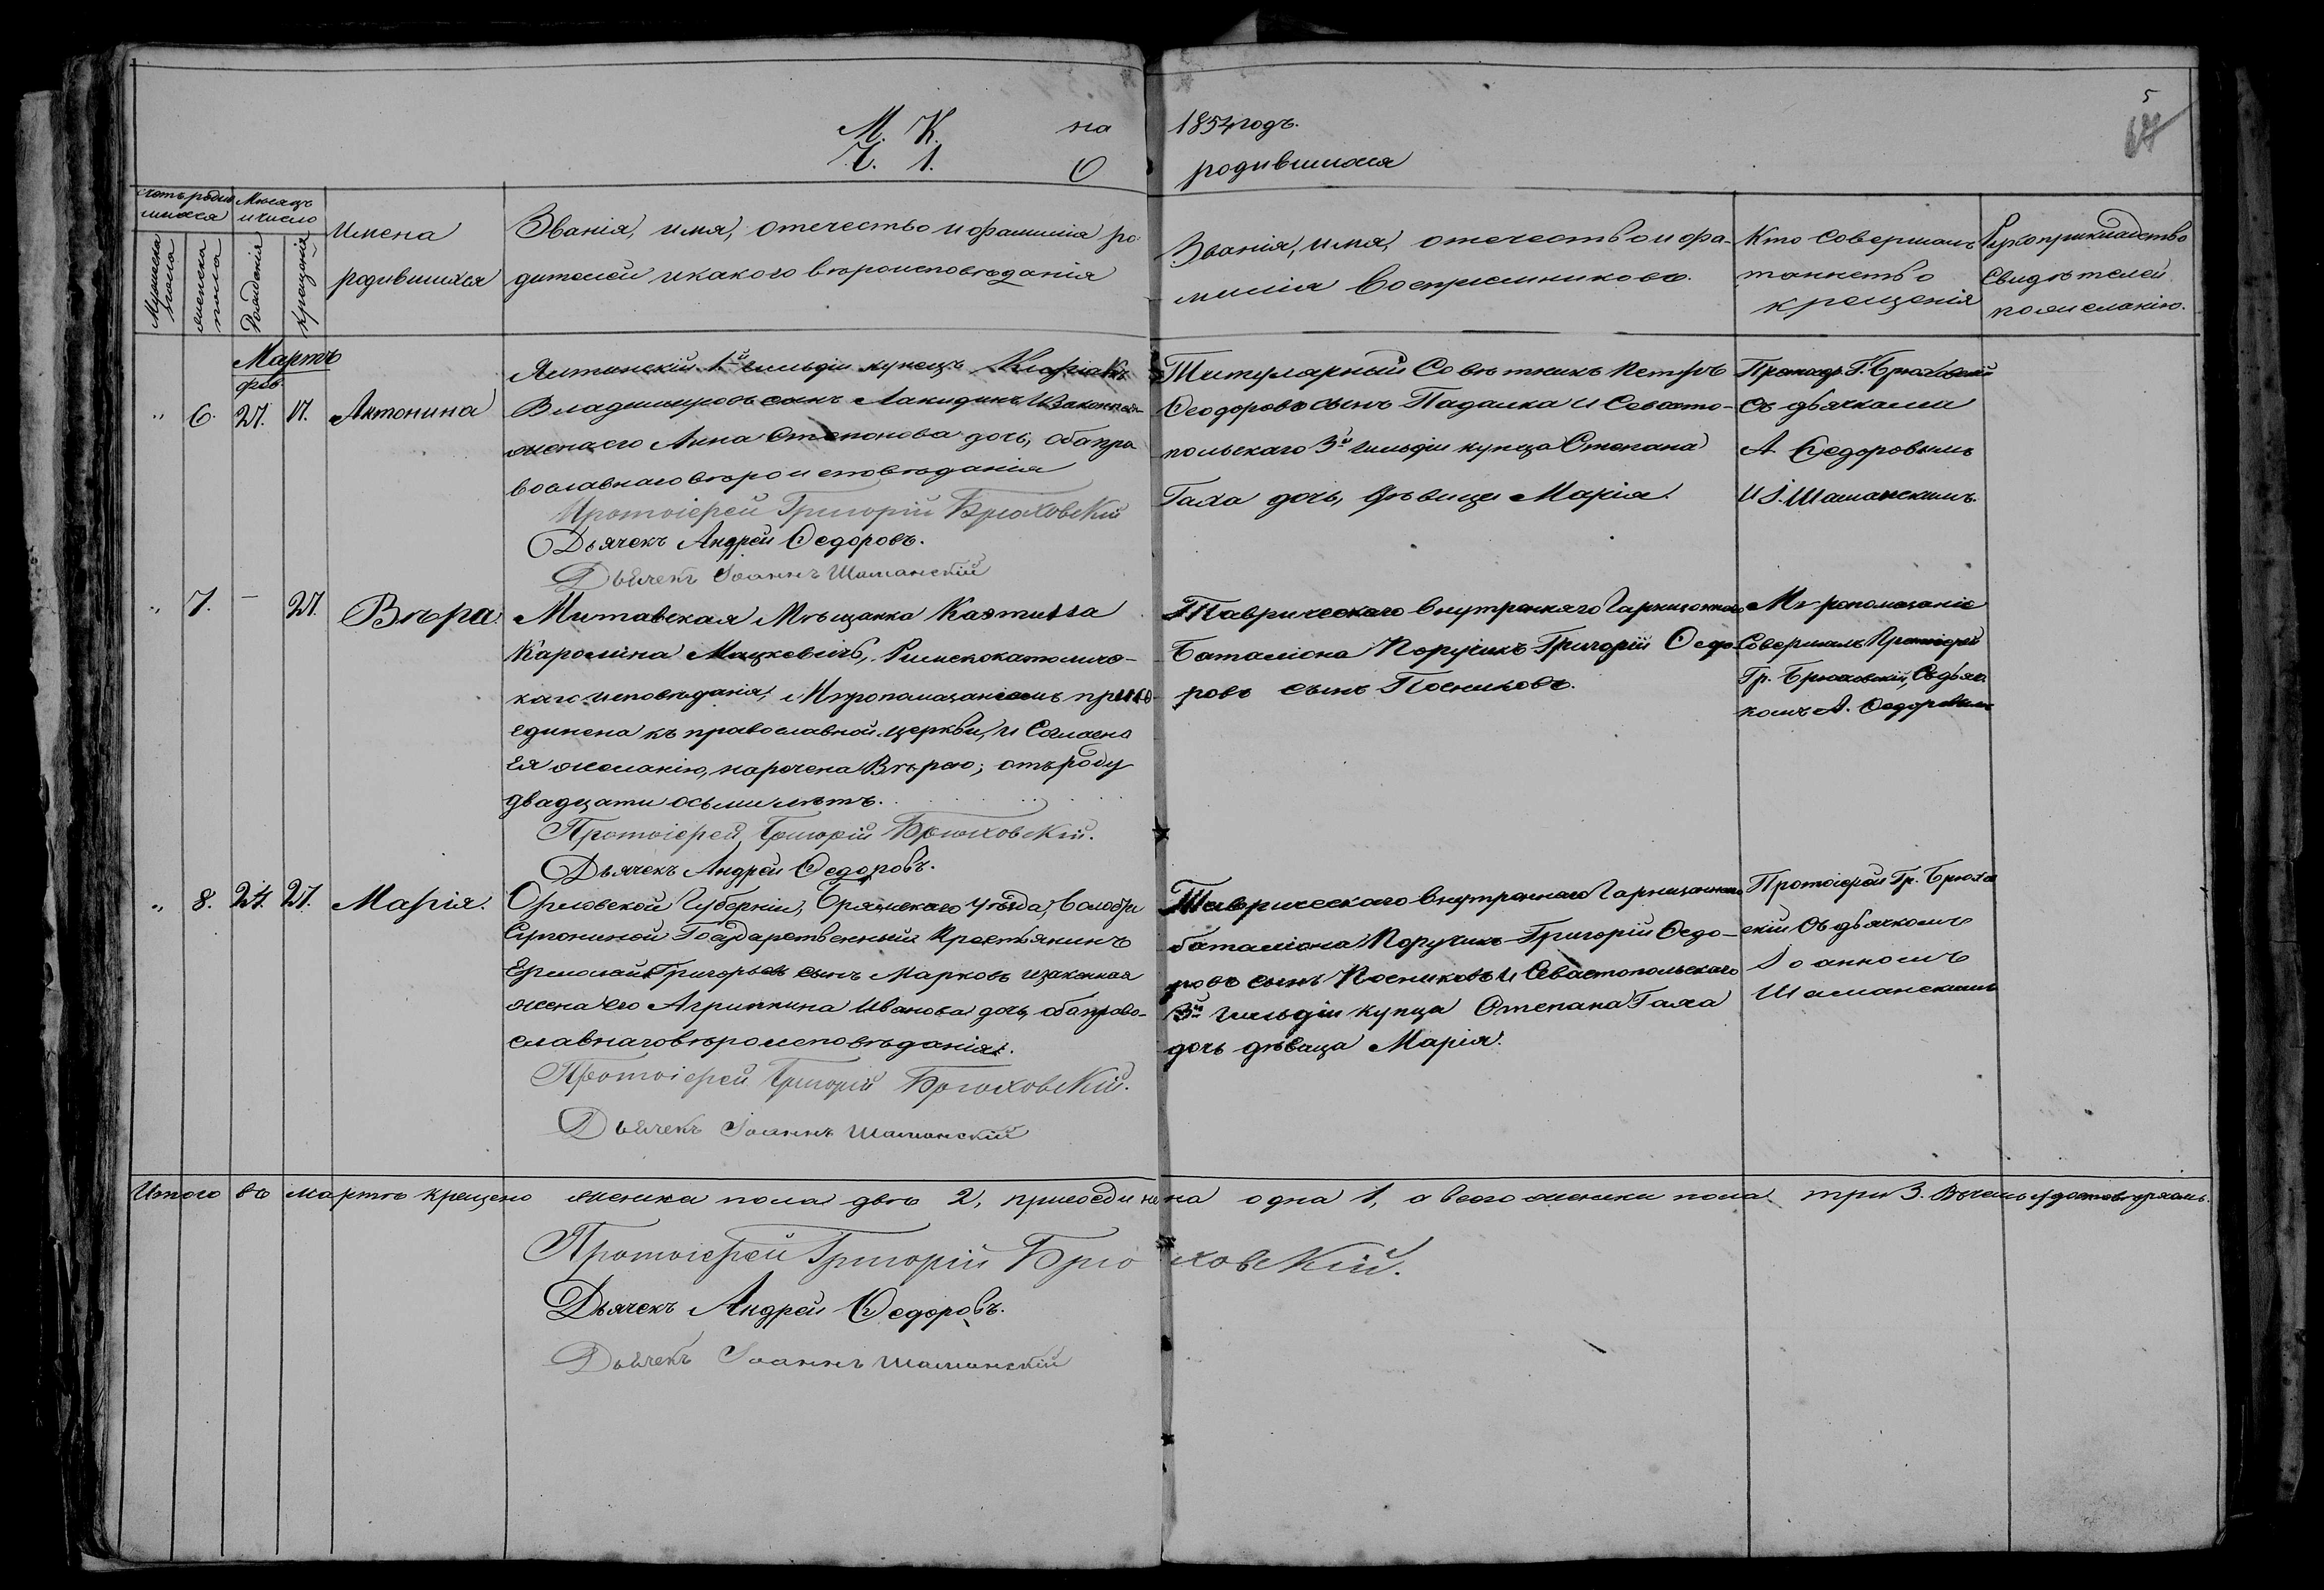 М. К. на 1854 годъ.
Ч. 1. О родившихся
5
Счетъ родившихся
Мужеска пола
женска пола
Мѣсяцъ и число
Рожденія
Крещенія
Имена
родившихся
Званія, имя, отечество и фамилія ро-
дителей и какого вѣроисповѣданія
Званія, имя, отечество и фа-
милія воспріемниковъ.
Кто совершалъ
таинство
крещенія
Рукоприкладство
свидѣтелей
по желанію.
Мартъ
фев.
„ 6. 27. 17. Антонина
Ялтинскій 1й гильдіи купецъ
Владиміровъ сынъ и законная
жена его Анна Степанова дочь, оба пра
вославнаго вѣроисповѣданія
Протоіерей Григорій Брюховскій
Дьячекъ Андрей Ѳедоровъ.
Дьячекъ Іоаннъ Шаманскій
Титулярный Совѣтникъ Петръ
Ѳеодоровъ сынъ Падалка и Севасто-
польскаго 3й гильдіи купца Степана
Гаха дочь, дѣвица Марія.
Протоіер. Г. Брюховскій
съ дьячками
А. Ѳедоровымъ
и І. Шаманскимъ.
„ 7. – 27. Вѣра.
Митавская Мѣщанка
Каролина Мацкевичъ, Римскокатоличе-
каго исповѣданія, Мѵропомазаніемъ присо-
единена къ православной церкви, и Согласно
Ея желанію, наречена Вѣрою; отъ роду
двадцати осьми лѣтъ.
Протоіерей Григорій Брюховскій.
Дьячекъ Андрей Ѳедоровъ.
Таврическаго внутренняго Гарнизоннаго
Баталіона Поручикъ Григорій Ѳедо-
ровъ сынъ Посниковъ.
Мѵропомазаніе
Совершалъ Протоіерей
Гр. Брюховскій, Съ дьяч
комъ А. Ѳедоровымъ
„ 8. 24. 27. Марія.
Орловской Губерніи, Брянскаго уѣзда, волости
Государственный Крестьянинъ
Ермолай Григорьевъ сынъ Марковъ и законная
жена его Агриппина Иванова дочь, оба право-
славнаго вѣроисповѣданія.
Протоіерей Григорій Брюховскій.
Дьячекъ Іоаннъ Шаманскій
Таврическаго внутренняго Гарнизоннаго
баталіона Поручикъ Григорій Ѳедо-
ровъ сынъ Посниковъ и Севастопольскаго
3й гильдіи купца Степана Гаха
дочь дѣвица Марія.
Протоіерей Гр. Брюхов
скій съ дьячкомъ
Іоанномъ
Шаманскимъ
Итого въ мартѣ крещено женска пола двѣ 2, присоединена одна 1, а всего женска пола три 3. Въ чемъ и удостовѣряемъ.
Протоіерей Григорій Брюховскій.
Дьячекъ Андрей Ѳедоровъ.
Дьячекъ Іоаннъ Шаманскій